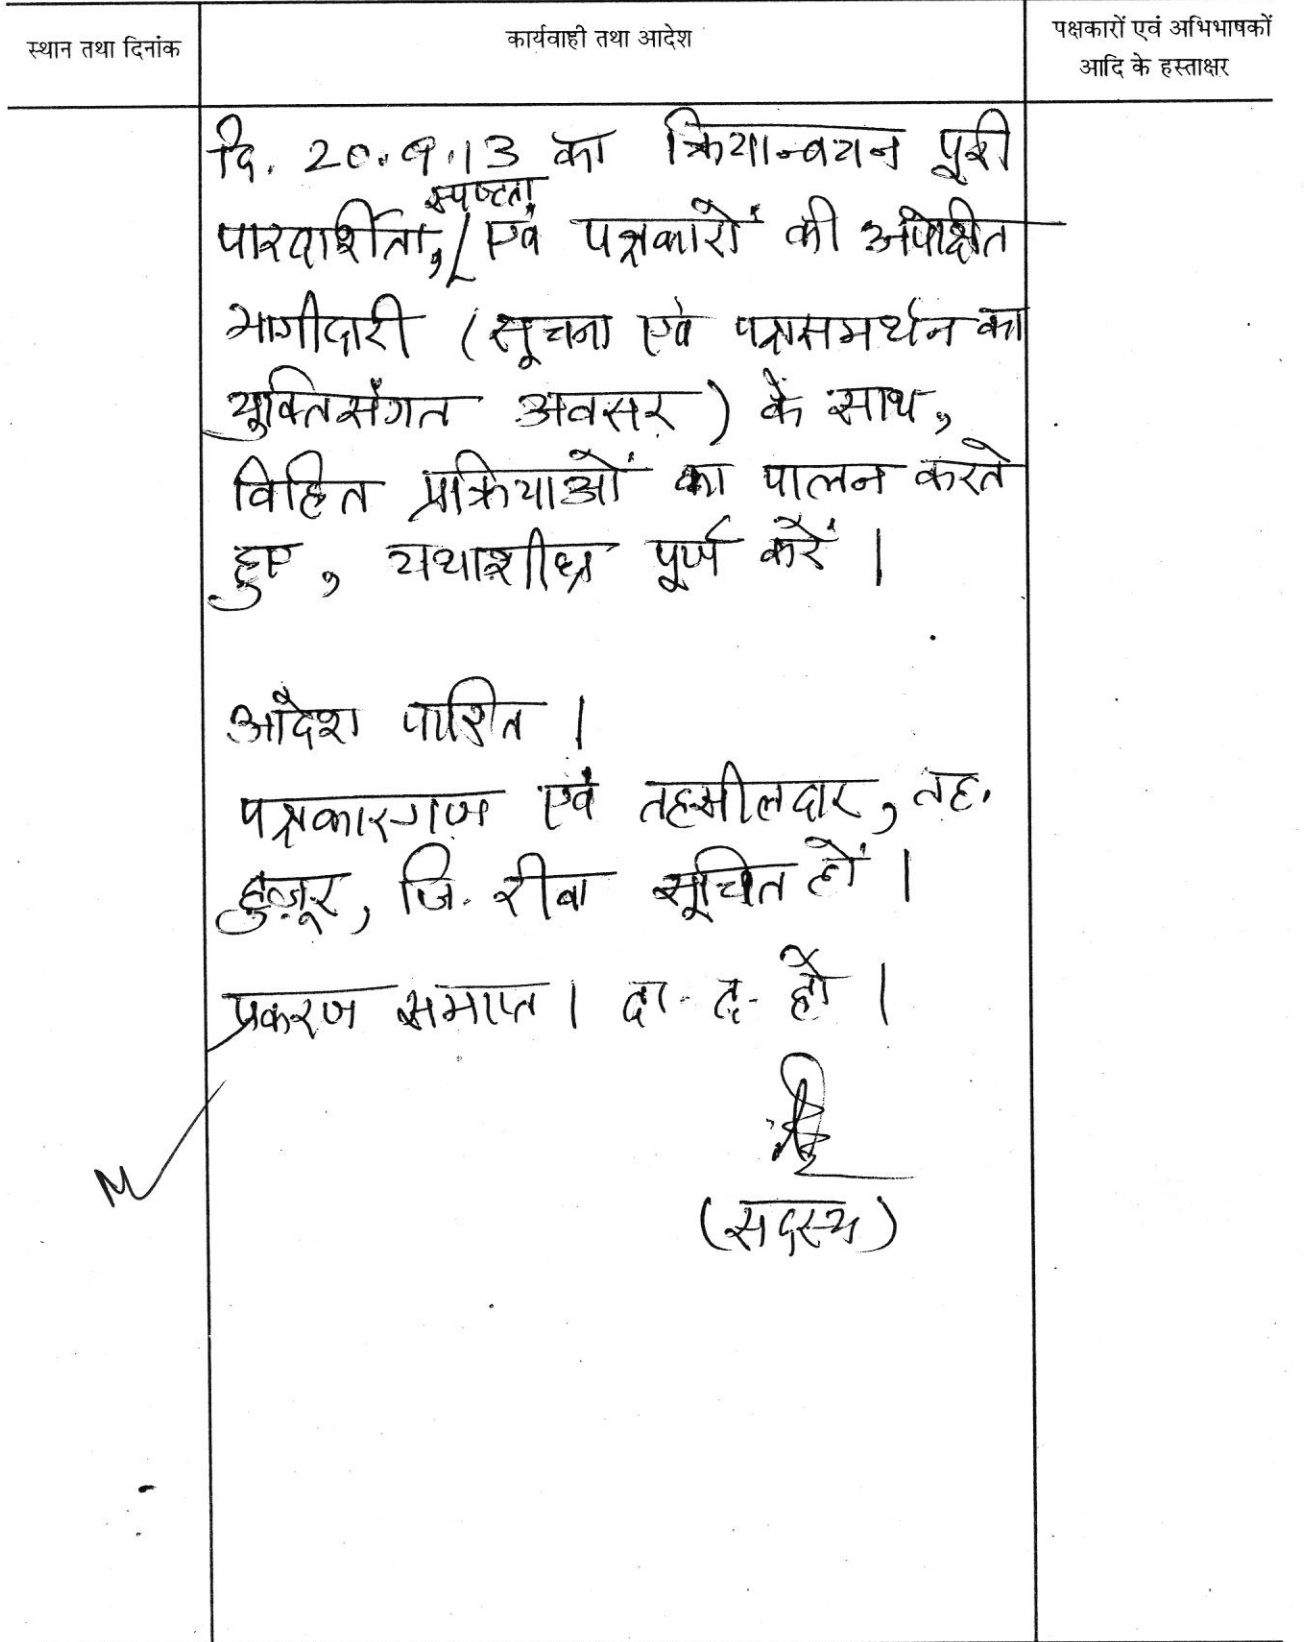 स्थान तथा दिनांक
कार्यवाही तथा आदेश
पक्षकारों एवं अभिभाषकों
आदि के हस्ताक्षर
दि. 20.9.13 का क्रियान्वयन पूरी
स्पष्टता,
पारदर्शिता, एवं पक्षकारों की अपेक्षित
भागीदारी (सूचना एवं पक्षसमर्थन का
युक्तिसंगत अवसर) के साथ,
विहित प्रक्रियाओं का पालन करते
हुए, यथाशीघ्र पूर्ण करें।
आदेश पारित।
पक्षकारगण एवं तहसीलदार, तह.
हुज़ूर, जि. रीवा सूचित हों।
प्रकरण समाप्त। दा. द. हो।
(सदस्य)